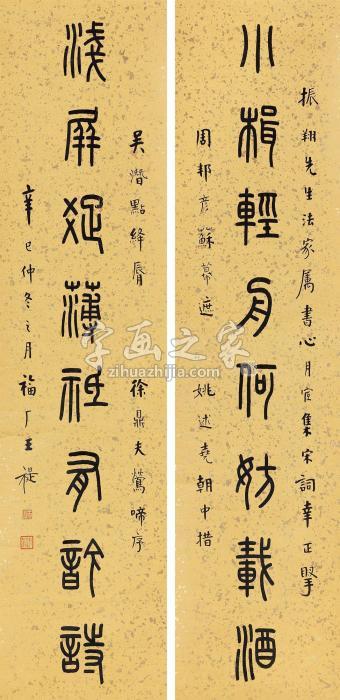 振翔先生法家属書心月宧集宋詞幸正
小楫輕舟何妨載酒
周邦彥蘇幕遮 姚述堯朝中措
吳潛點絳脣 徐鼎夫鶯啼序
淺屏薄祇有詩
辛巳仲冬之月福厂王禔
字画之家
zihuazhijia.com